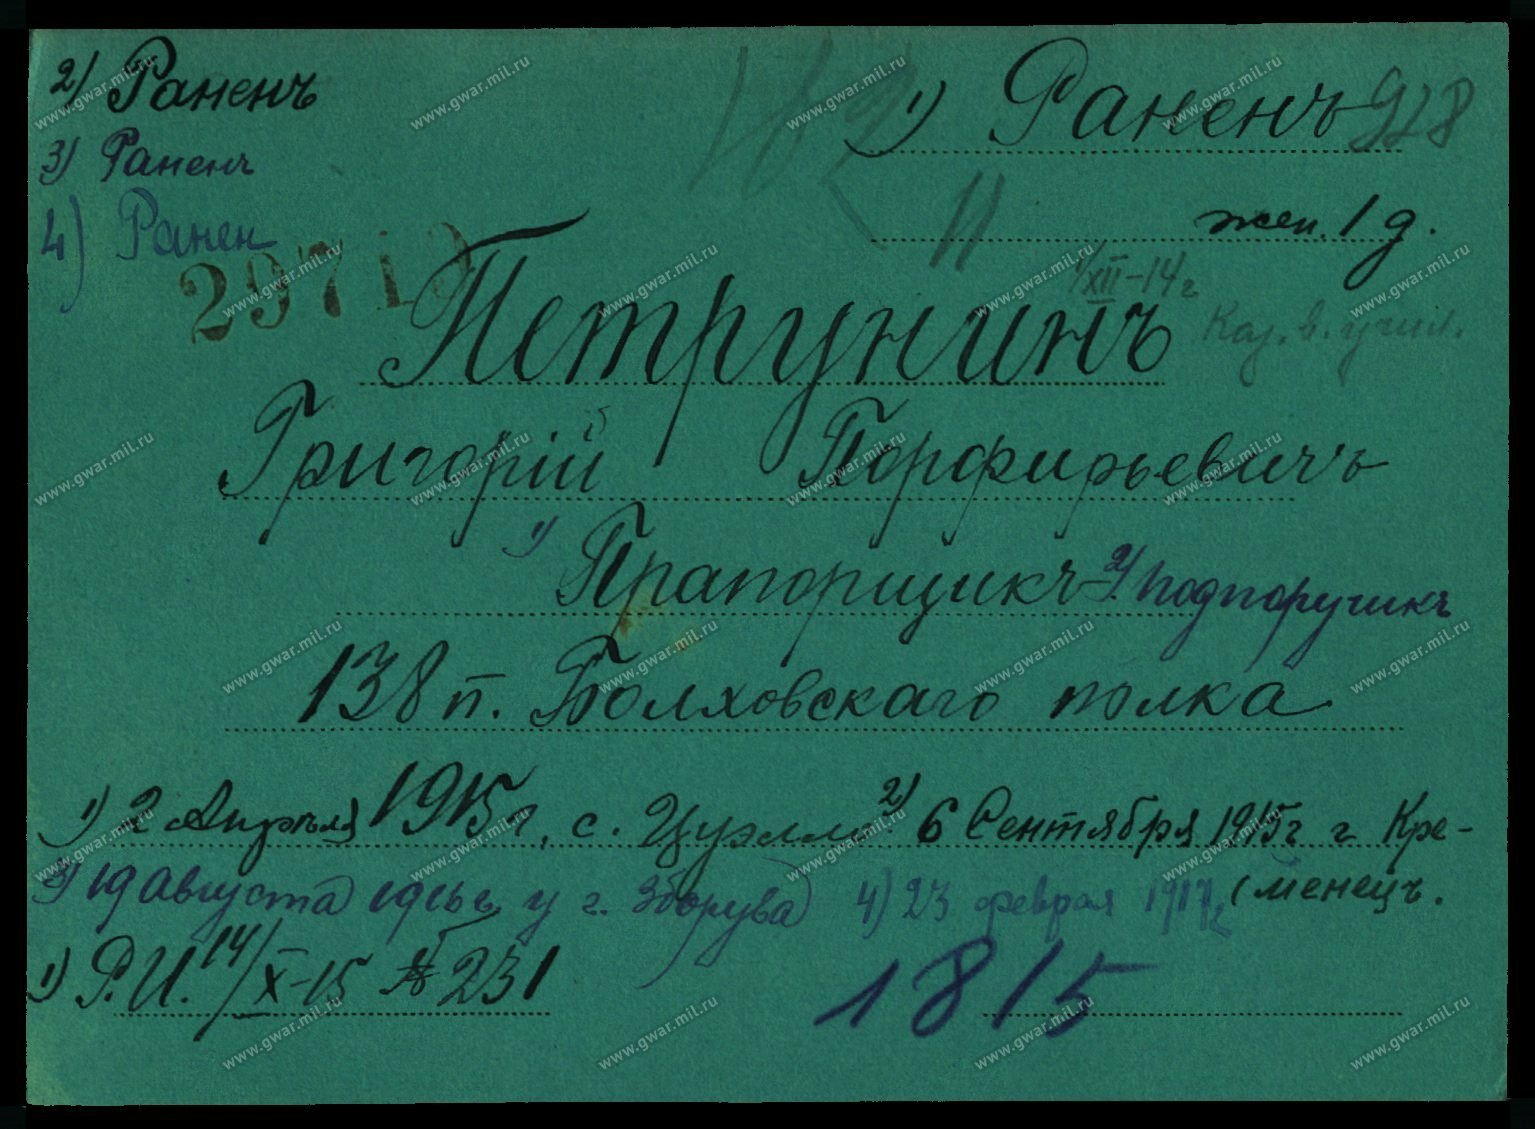 2) Раненъ
1) Раненъ
3) Раненъ
4) Ранен
жен. 1 д.
2971
1/XII-14 г
Каз. в. учил.
Петрунинъ
Григорій Порфирьевичъ
1) Прапорщикъ 2) Подпоручикъ
138 п. Болховскаго полка
1) 2 Апрѣля 1915 г., с. Цуэлли 2) 6 Сентября 1915 г г. Кре-
3) 19 августа 1916 г. у г. Зборува 4) 23 февраля 1917 г. (менецъ.
1) Р.И. 14/X-15 № 231
1815
www.gwar.mil.ru